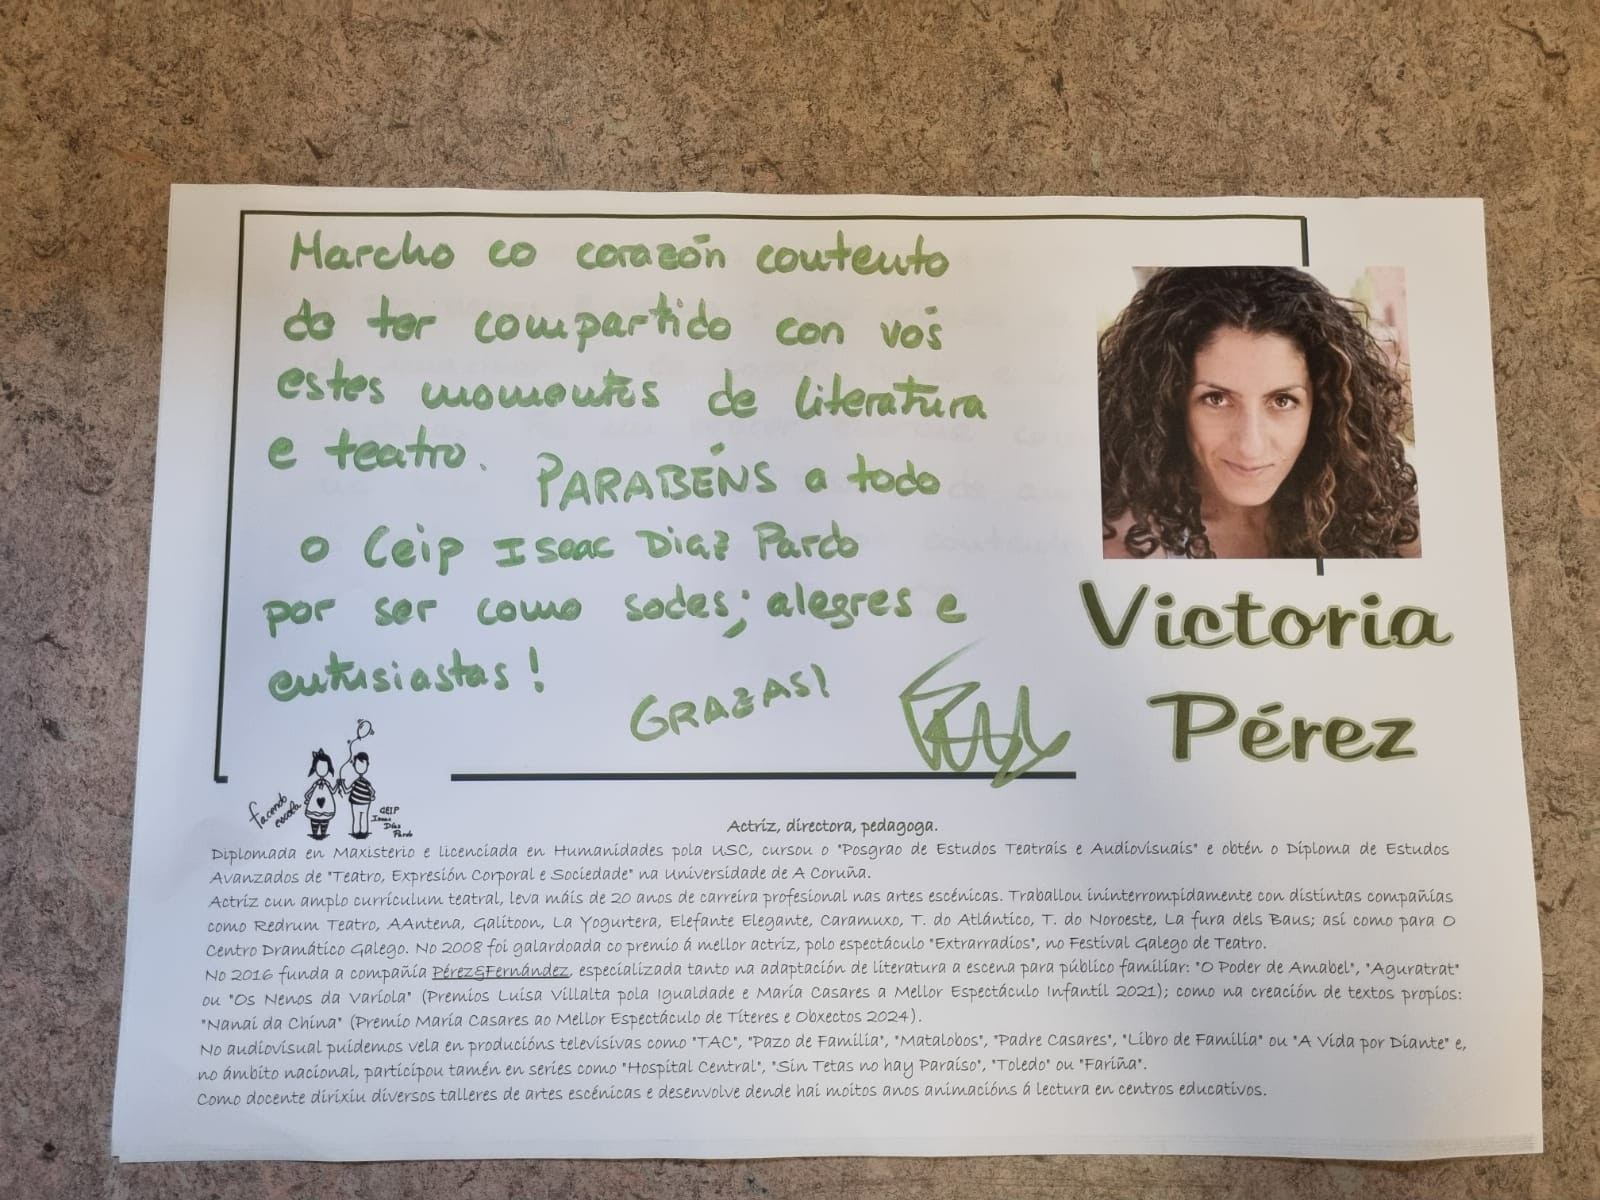 Marcho co corazón contento
de ter compartido con vós
estes momentos de literatura
e teatro. PARABÉNS a todo
o Ceip Isaac Diaz Pardo
por ser como sodes; alegres e
entusiastas!
GRAZAS!
Victoria
Pérez
facendo
escola
CEIP
Isaac
Díaz
Pardo
Actriz, directora, pedagoga.
Diplomada en Maxisterio e licenciada en Humanidades pola USC, cursou o "Posgrao de Estudos Teatrais e Audiovisuais" e obtén o Diploma de Estudos
Avanzados de "Teatro, Expresión Corporal e Sociedade" na Universidade de A Coruña.
Actriz cun amplo currículum teatral, leva máis de 20 anos de carreira profesional nas artes escénicas. Traballou ininterrompidamente con distintas compañías
como Redrum Teatro, AAntena, Galitoon, La Yogurtera, Elefante Elegante, Caramuxo, T. do Atlántico, T. do Noroeste, La fura dels Baus; así como para O
Centro Dramático Galego. No 2008 foi galardoada co premio á mellor actriz, polo espectáculo "Extrarradios", no Festival Galego de Teatro.
No 2016 funda a compañía Pérez&Fernández, especializada tanto na adaptación de literatura a escena para público familiar: "O Poder de Amabel", "Aguratrat"
ou "Os Nenos da Varíola" (Premios Luísa Villalta pola Igualdade e María Casares a Mellor Espectáculo Infantil 2021); como na creación de textos propios:
"Nanai da China" (Premio María Casares ao Mellor Espectáculo de Títeres e Obxectos 2024).
No audiovisual puidemos vela en producións televisivas como "TAC", "Pazo de Familia", "Matalobos", "Padre Casares", "Libro de Familia" ou "A Vida por Diante" e,
no ámbito nacional, participou tamén en series como "Hospital Central", "Sin Tetas no hay Paraíso", "Toledo" ou "Fariña".
Como docente dirixiu diversos talleres de artes escénicas e desenvolve dende hai moitos anos animacións á lectura en centros educativos.